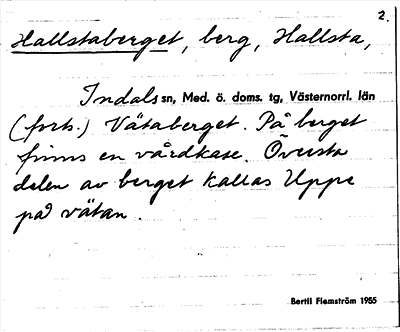 2.
Hallstaberget, berg, Hallsta,
Indals sn, Med. ö. doms. tg, Västernorrl. län
(forts.) Vätaberget. På berget
finns en vårdkase. Översta
delen av berget kallas Uppe
på vätan.
Bertil Flemström 1955